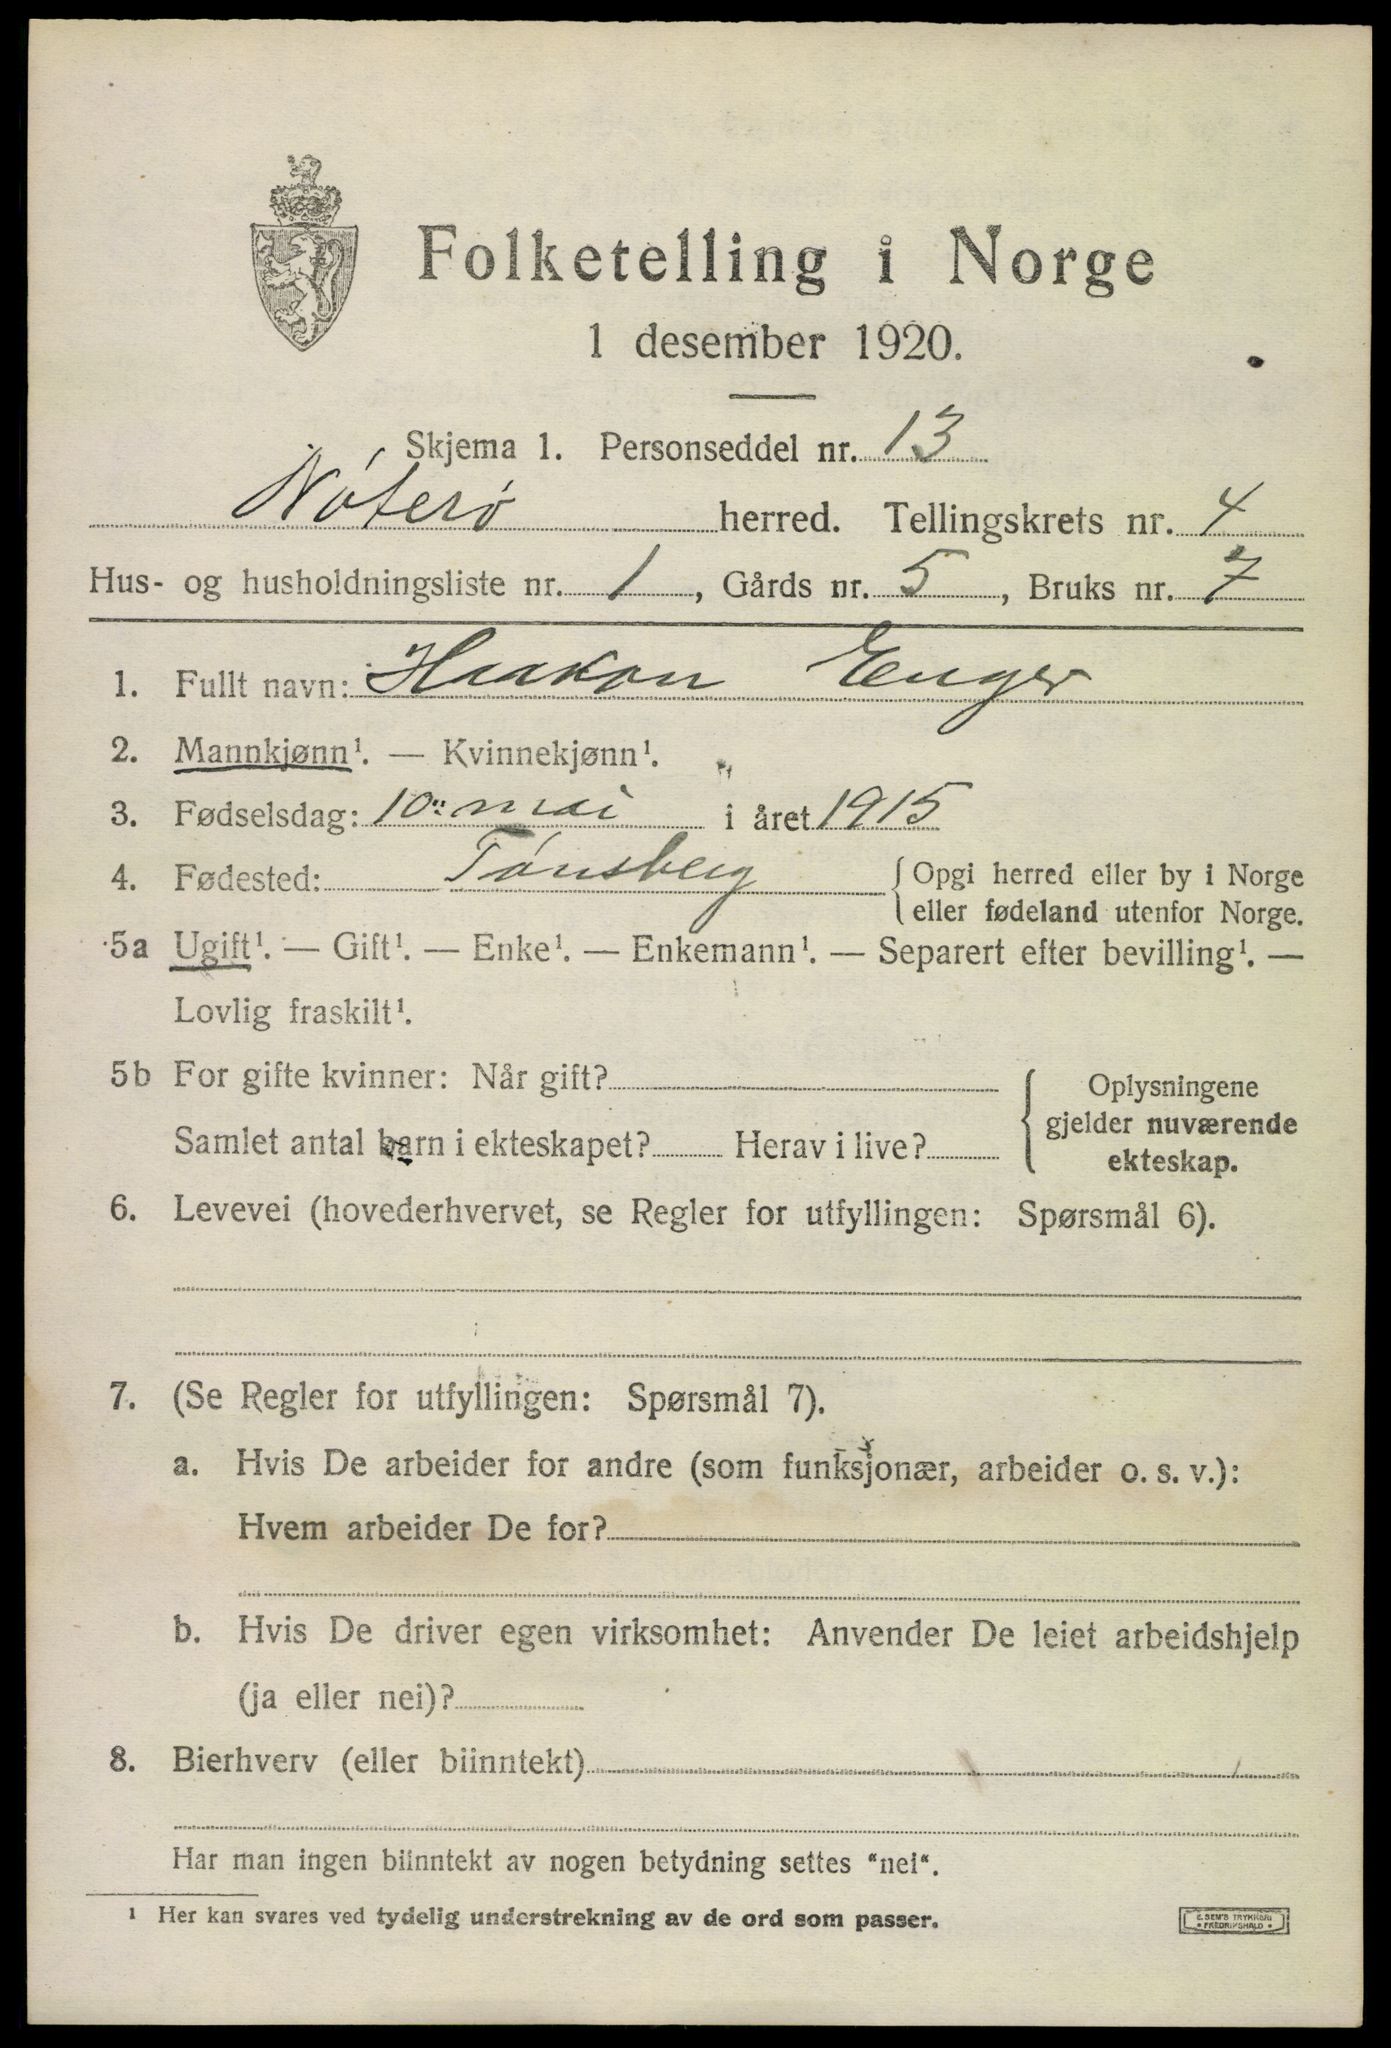 Folketelling i Norge
1 desember 1920.
Skjema 1. Personseddel nr. 13
Nøterø herred. Tellingskrets nr. 4
Hus- og husholdningsliste nr. 1, Gårds nr. 5, Bruks nr. 7
1. Fullt navn: Haakon Enger
2. Mannkjønn¹. — Kvinnekjønn¹.
3. Fødselsdag: 10" mai i året 1915
4. Fødested: Tønsberg { Opgi herred eller by i Norge
eller fødeland utenfor Norge.
5a Ugift¹. — Gift¹. — Enke¹. — Enkemann¹. — Separert efter bevilling¹. —
Lovlig fraskilt¹.
5b For gifte kvinner: Når gift?
Samlet antal barn i ekteskapet? Herav i live?
{ Oplysningene
gjelder nuværende
ekteskap.
6. Levevei (hovederhvervet, se Regler for utfyllingen: Spørsmål 6).
7. (Se Regler for utfyllingen: Spørsmål 7).
a. Hvis De arbeider for andre (som funksjonær, arbeider o. s. v.):
Hvem arbeider De for?
b. Hvis De driver egen virksomhet: Anvender De leiet arbeidshjelp
(ja eller nei)?
8. Bierhverv (eller biinntekt)
Har man ingen biinntekt av nogen betydning settes "nei".
¹ Her kan svares ved tydelig understrekning av de ord som passer.
E. SEM'S TRYKKERI
• FREDRIKSHALD •